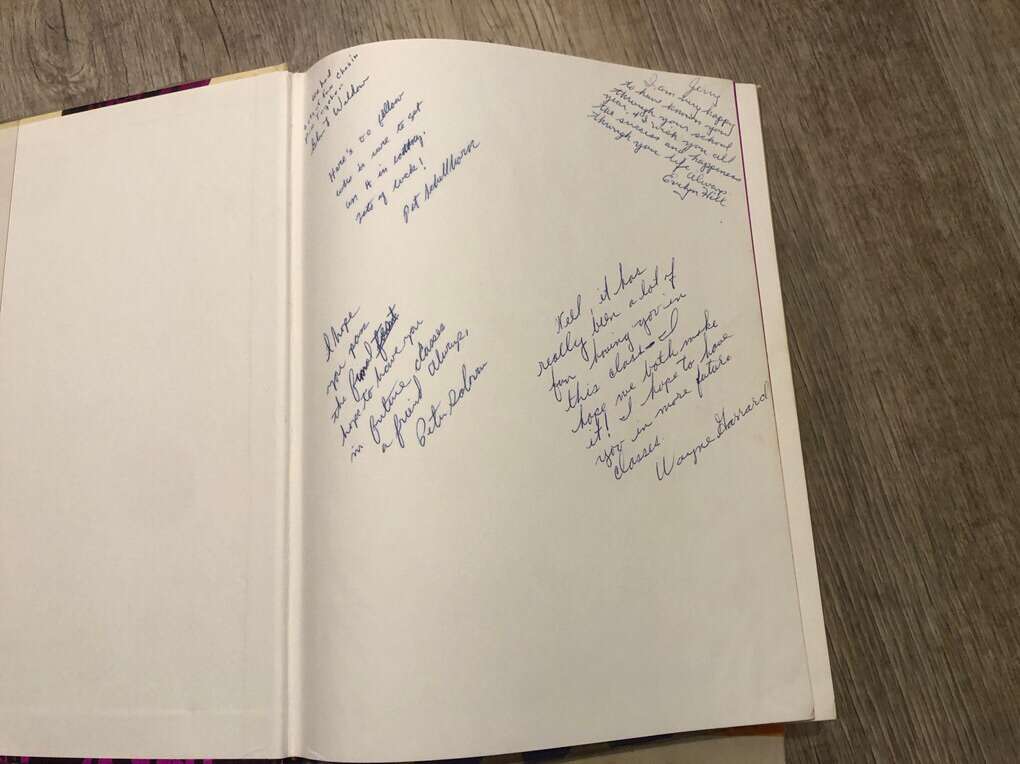 Here's to fellow
who is sure to get
an A in
lots of luck!
Pat
Jerry
I am very happy
to have known you
through your school
year + I wish you all
the success and happiness
through your life. Always
Evelyn Hill
I hope
you pass
the final
hope to have you
in future classes
a friend always,
Peter
Well, it has
really been a lot of
fun having you in
this class—I
hope we both make
it! I hope to have
you in more future
classes.
Wayne Garrard